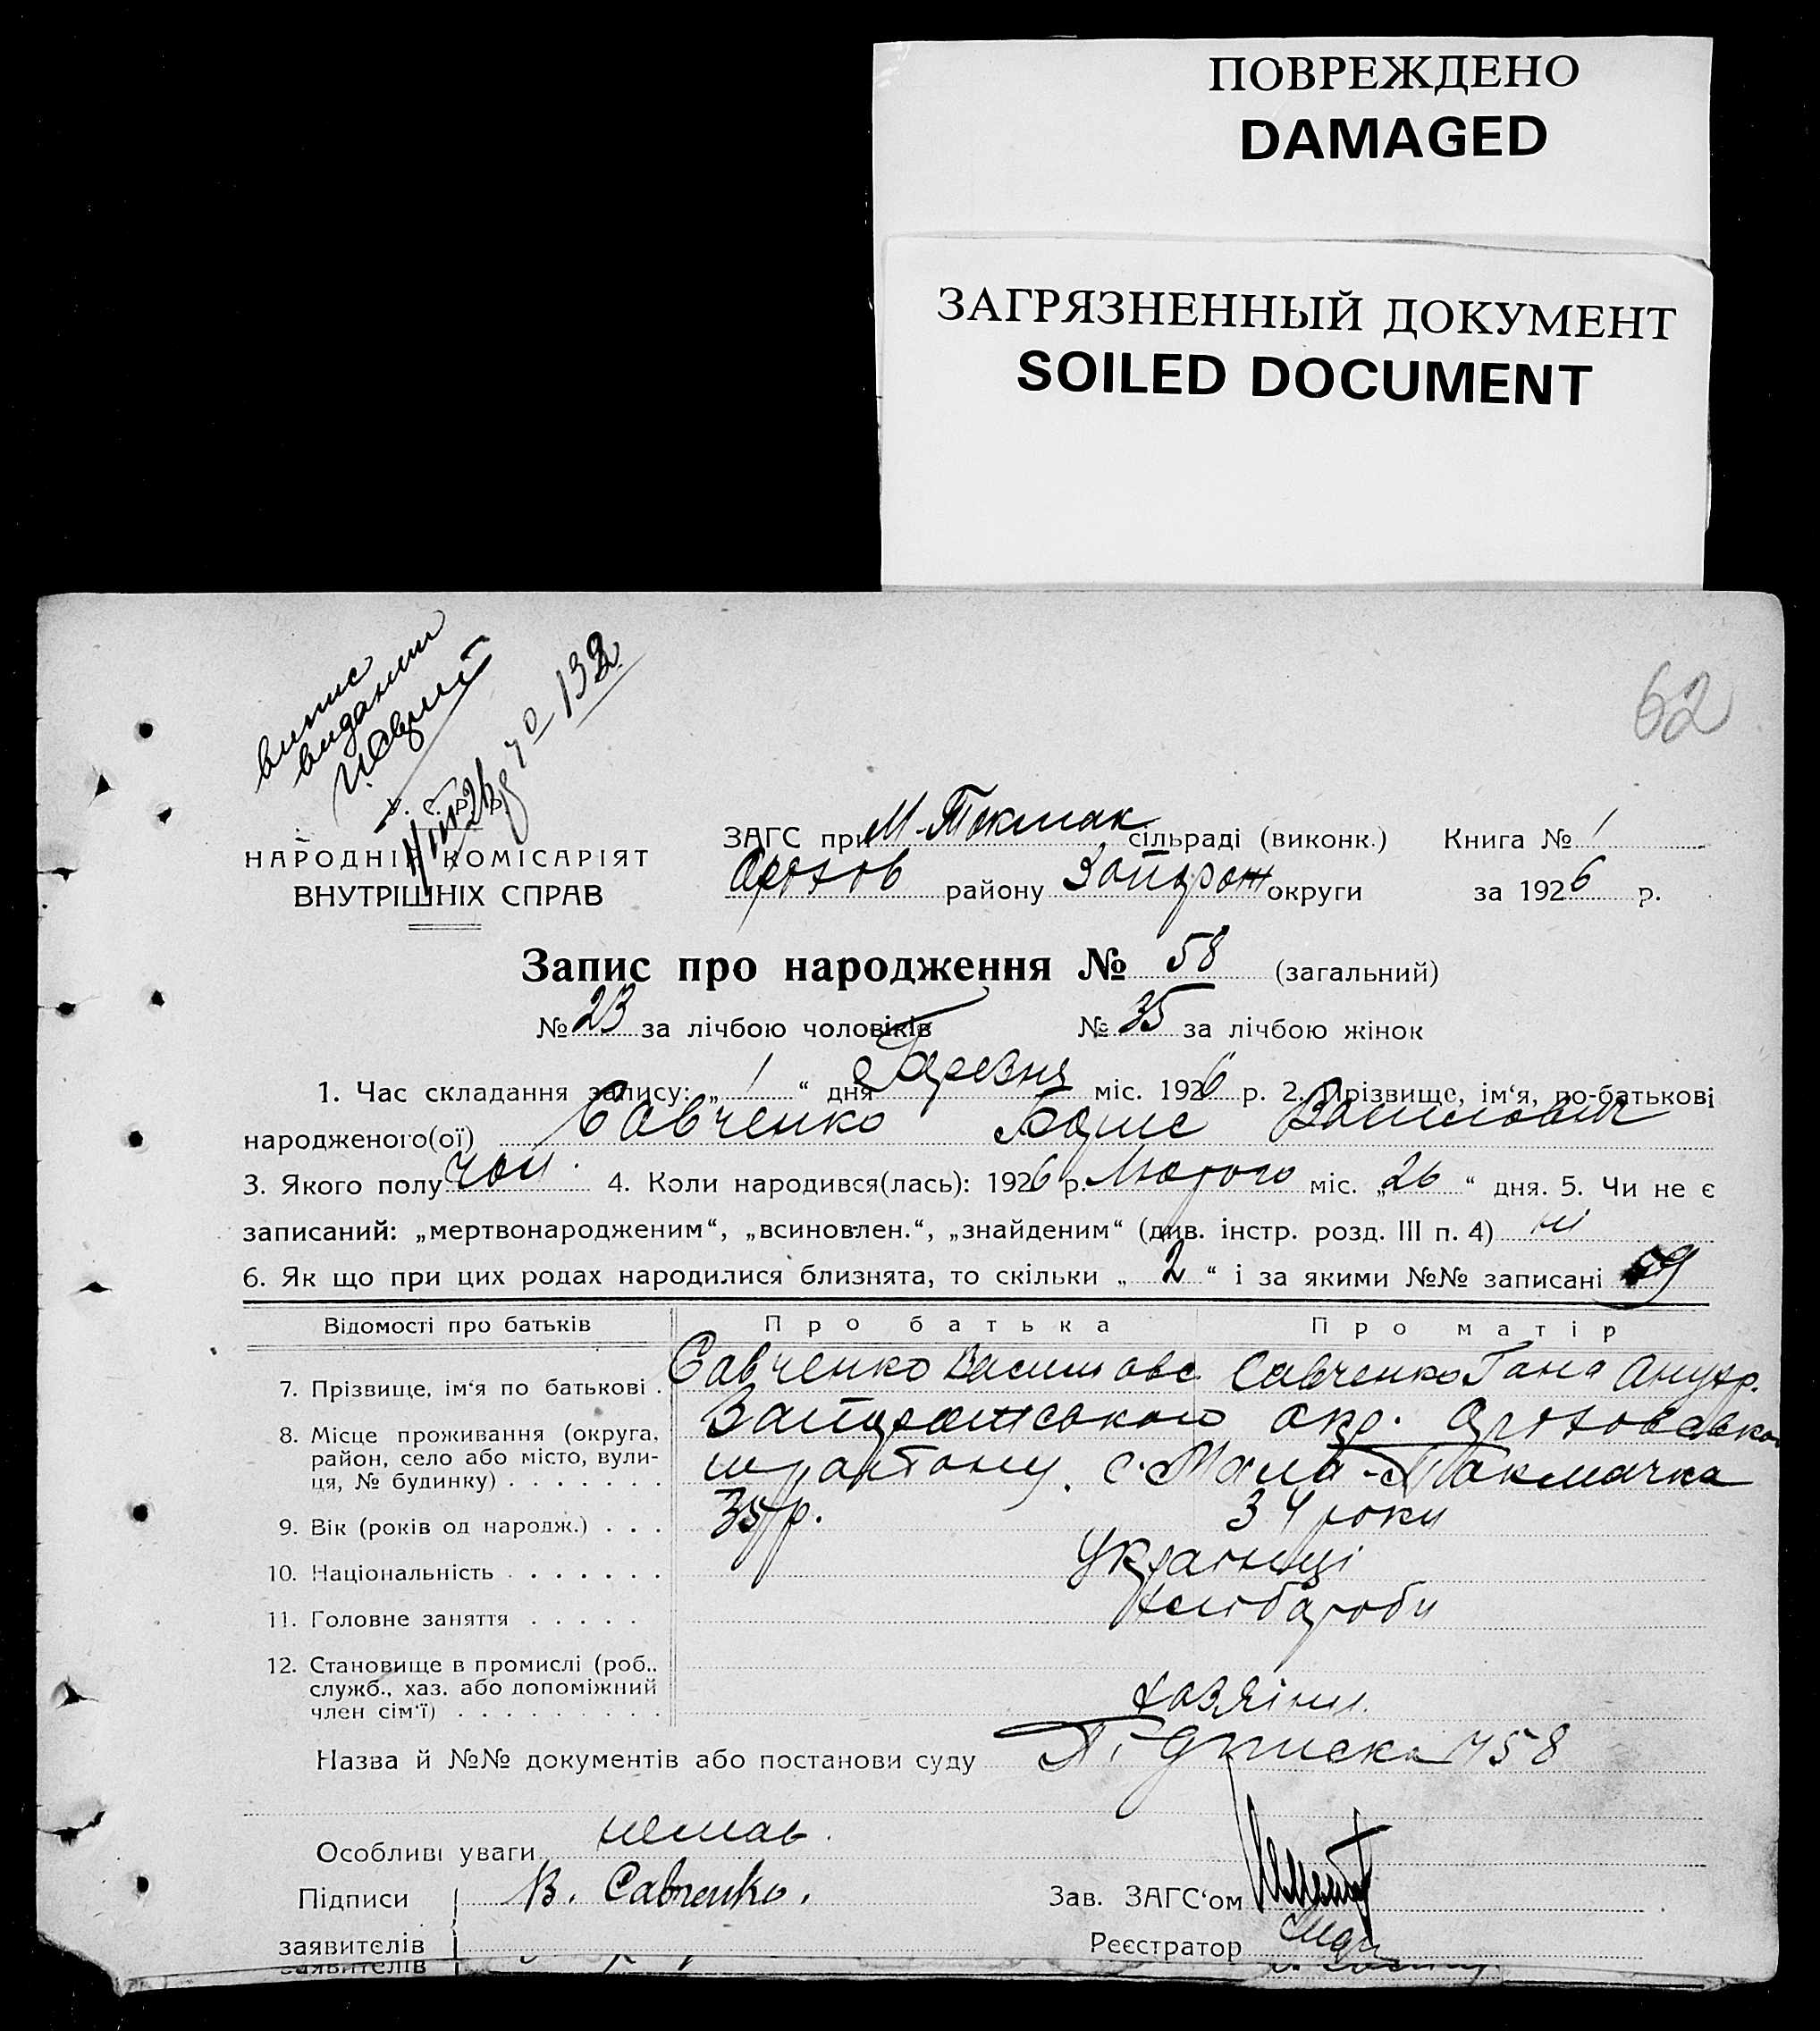 ПОВРЕЖДЕНО
DAMAGED
ЗАГРЯЗНЕННЫЙ ДОКУМЕНТ
SOILED DOCUMENT
62
випис
виданий
132
НАРОДНІЙ КОМІСАРІЯТ
ВНУТРІШНІХ СПРАВ
ЗАГС при М-Токмак сільраді (виконк.) Книга № 1
Оріхов району Запорож округи за 1926 р.
Запис про народження № 58 (загальний)
№ 23 за лічбою чоловіків № 35 за лічбою жінок
1. Час складання запису: „ 1 “ дня березня міс. 1926 р. 2. Прізвище, ім‘я, по-батькові
народженого(ої) Савченко Борис Василович
3. Якого полу чол. 4. Коли народився(лась): 1926 р. Лютого міс. „26“ дня. 5. Чи не є
записаний: „мертвонародженим“, „всиновлен.“, „знайденим“ (див. інстр. розд. III п. 4) ні
6. Як що при цих родах народилися близнята, то скільки „ 2 “ і за якими №№ записані 59
Відомості про батьків Про батька Про матір
7. Прізвище, ім‘я по батькові . Савченко Савченко Гана
8. Місце проживання (округа, Запорожського окр.
район, село або місто, вули-
ця, № будинку) . . . . . . . с. Мала-Токмачка
9. Вік (років од народж.) . . . 35 р. 34 роки
10. Національність . . . . . . . Українці
11. Головне заняття . . . . . хлібороби
12. Становище в промислі (роб.,
служб., хаз. або допоміжний
член сім‘ї) . . . . . . . . . хозяіни.
Назва й №№ документів або постанови суду Підписка 458
Особливі уваги немає.
Підписи В. Савченко. Зав. ЗАГС‘ом
заявителів Реєстратор
заявителів